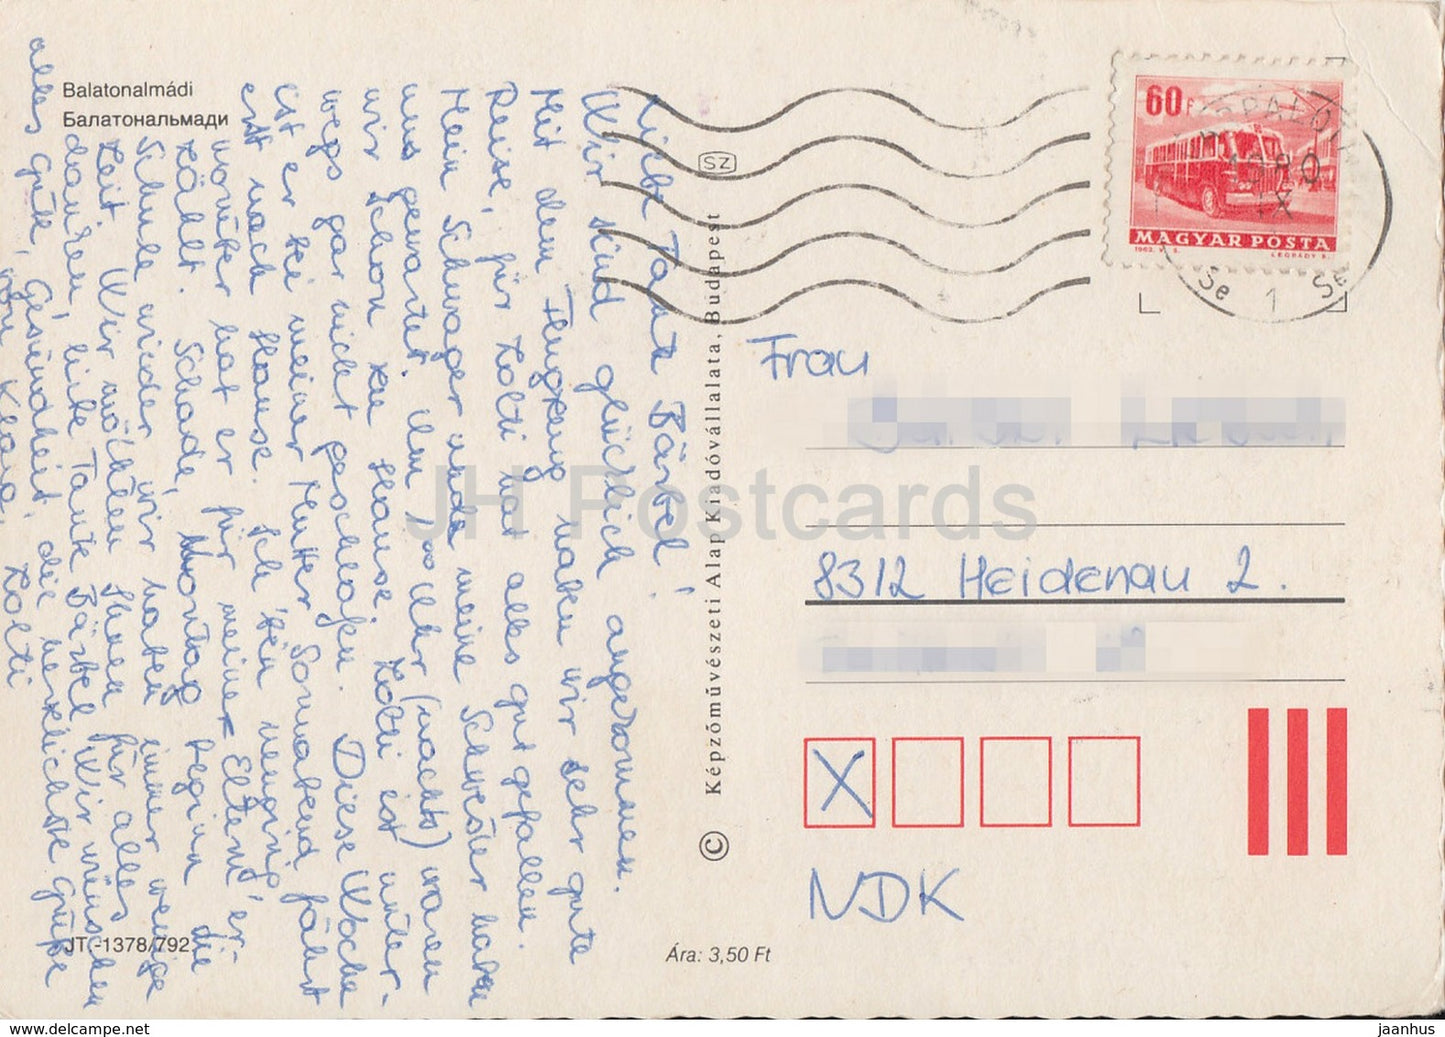 Balatonalmádi
Балатональмади
Liebe Tante Bärbel!
Wir sind glücklich angekommen.
Mit dem Flugzeug haben wir sehr gute
Reise, für Zolti hat alles gut gefallen.
Mein Schwager und meine Schwester haben
uns gewartet. Um Uhr (nachts) waren
wir schon zu Hause. Zolti ist unter-
wegs gar nicht geschlafen. Diese Woche
ist er bei meiner Mutter Sonnabend fährt
erst nach Hause. Ich bin neugirig,
worüber hat er für meine Eltern er-
zählt. Schade, Montag beginn die
Schule wieder wir haben immer wenige
Zeit. Wir möchten Ihnen für alles
danken, liebe Tante Bärbel. Wir wünschen
alles gute, Gesundheit, die herzlichste Grüße
von Klara, Zolti
JT.-1378/792.
Ára: 3,50 Ft
© Képzőművészeti Alap Kiadóvállalata, Budapest
SZ
60 F
MAGYAR POSTA
1963. V. E.
LÉGRÁDY S.
1980
IX
Se 1 Se
Frau
8312 Heidenau 2.
X
NDK
JH Postcards
www.delcampe.net
jaanhus